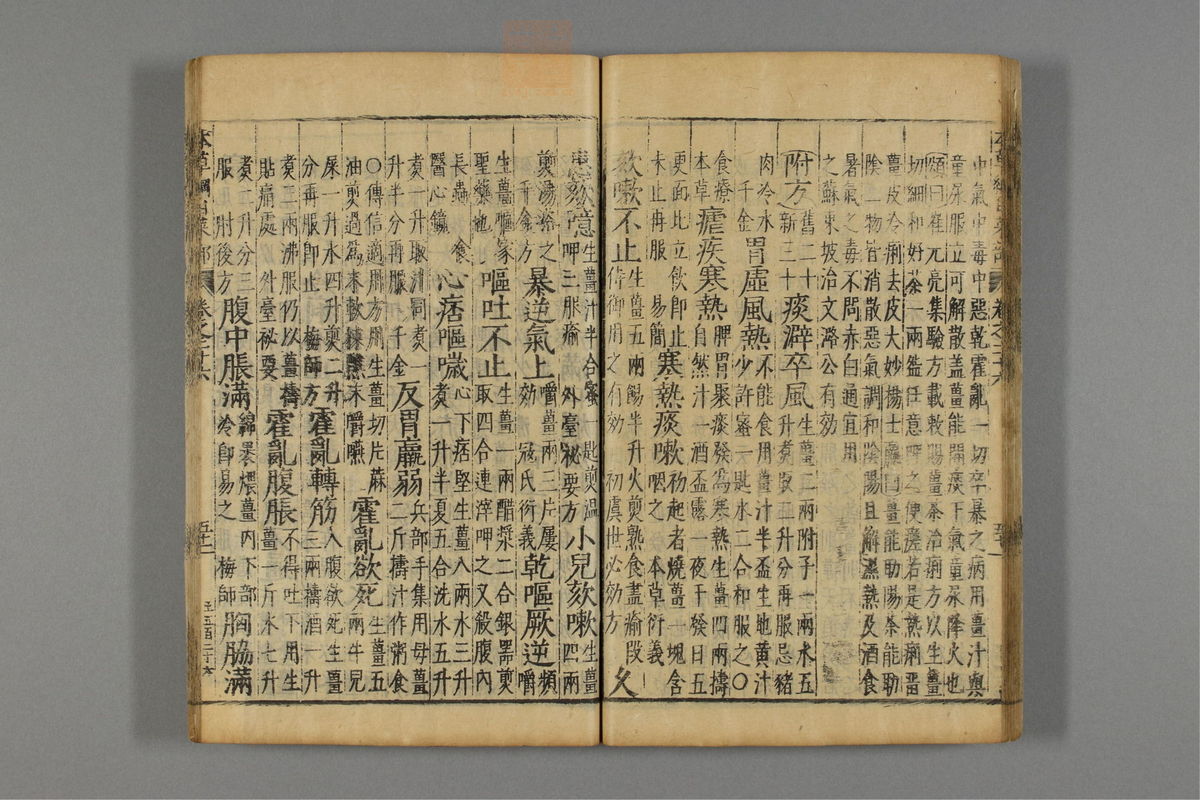 中氣中毒中惡乾霍亂一切卒暴之病用薑汁與
童尿服立可解散蓋薑能開痰下氣童尿降火也
頌曰崔元亮集驗方載敕賜薑茶治痢方以生薑
切細和好茶一兩盌任意呷之便瘥若是熱痢畱
薑皮冷痢去皮大妙楊士瀛曰薑能助陽茶能助
陰二物皆消散惡氣調和陰陽且解濕熱及酒食
暑氣之毒不問赤白通宜用
之蘇東坡治文潞公有效
附方舊二十新三十痰澼卒風生薑二兩附子一兩水五
升煮取二升分再服忌豬
肉冷水千金胃虛風熱不能食用薑汁半盃生地黃汁
少許蜜一匙水二合和服之〇
食療本草瘧疾寒熱脾胃聚痰發為寒熱生薑四兩擣
自然汁一酒盃露一夜于發日五
更面北立飲即止
未止再服易簡寒熱痰嗽初起者燒薑一塊含
咽之本草衍義久
欬嗽不止生薑五兩餳半升火煎熟食盡瘉段
侍御用之有効初虞世必効方
患欬噫生薑汁半合蜜一匙煎溫
呷三服瘉外臺秘要方小兒欬嗽生薑四兩
煎湯浴之
千金方暴逆氣上嚼薑兩三片屢
效寇氏衍義乾嘔厥逆頻嚼
生薑嘔家
聖藥也嘔吐不止生薑一兩醋漿二合銀噐煎
取四合連滓呷之又殺腹內
長蟲食
醫心鏡心痞嘔噦心下痞堅生薑八兩水三升
煮一升半夏五合洗水五升
煮一升取汁同煮一
升半分再服千金反胃羸弱兵部手集用母薑
二斤擣汁作粥食
〇傳信適用方用生薑切片麻
油煎過為末軟柿蘸末嚼嚥霍亂欲死生薑五
兩牛兒
屎一升水四升煎二升
分再服即止梅師方霍亂轉筋入腹欲死生薑
三兩擣酒一升
煮三兩沸服仍以薑擣
貼痛處外臺秘要霍亂腹脹不得吐下用生
薑一斤水七升
煮二升分三
服肘後方腹中脹滿綿裹煨薑內下部
冷即易之梅師胸脇滿